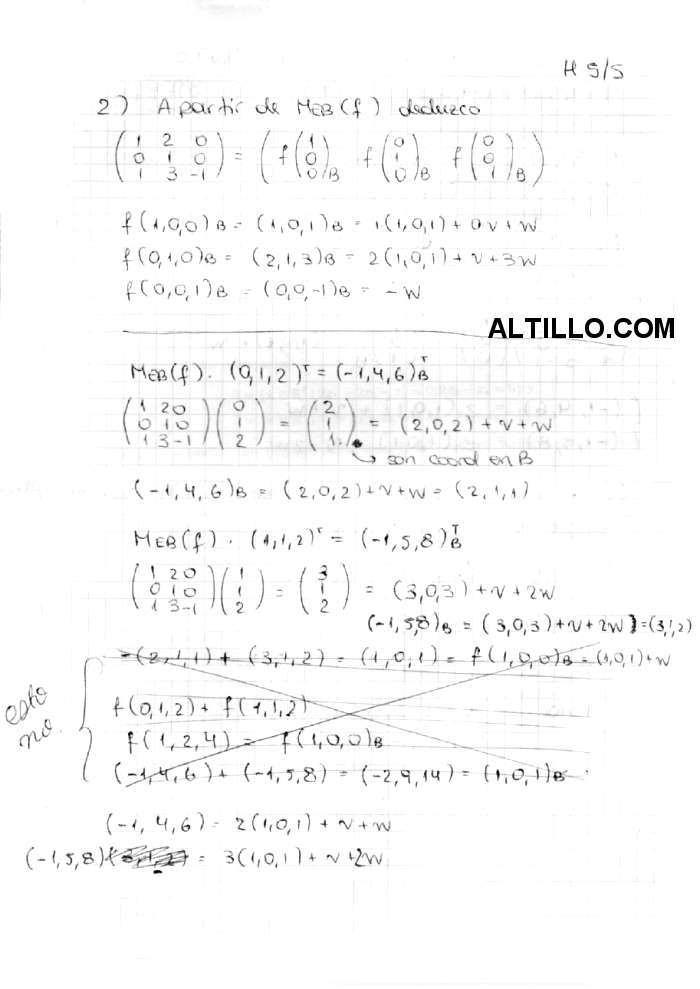 H 5/5
2) A partir de MEB(f) deduzco
(1 2 0 / 0 1 0 / 1 3 -1) = (f(1 0 0)B f(0 1 0)B f(0 0 1)B)
f(1,0,0)B = (1,0,1)B = 1(1,0,1) + 0v + w
f(0,1,0)B = (2,1,3)B = 2(1,0,1) + v + 3w
f(0,0,1)B = (0,0,-1)B = -w
ALTILLO.COM
MEB(f) . (0,1,2)ᵀ = (-1,4,6)ᵀB
(1 2 0 / 0 1 0 / 1 3 -1) (0 1 2) = (2 1 1) = (2,0,2) + v + w
↳ son coord en B
(-1,4,6)B = (2,0,2) + v + w = (2,1,1)
MEB(f) . (1,1,2)ᵀ = (-1,5,8)ᵀB
(1 2 0 / 0 1 0 / 1 3 -1) (1 1 2) = (3 1 2) = (3,0,3) + v + 2w
(-1,5,8)B = (3,0,3) + v + 2w = (3,1,2)
-(2,1,1) + (3,1,2) = (1,0,1) = f(1,0,0)B = (1,0,1) + w
esto no.
f(0,1,2) + f(1,1,2)
f(1,2,4) = f(1,0,0)B
(-1,4,6) + (-1,5,8) = (-2,9,14) = (1,0,1)B
(-1,4,6) = 2(1,0,1) + v + w
(-1,5,8) = 3(1,0,1) + v + 2w